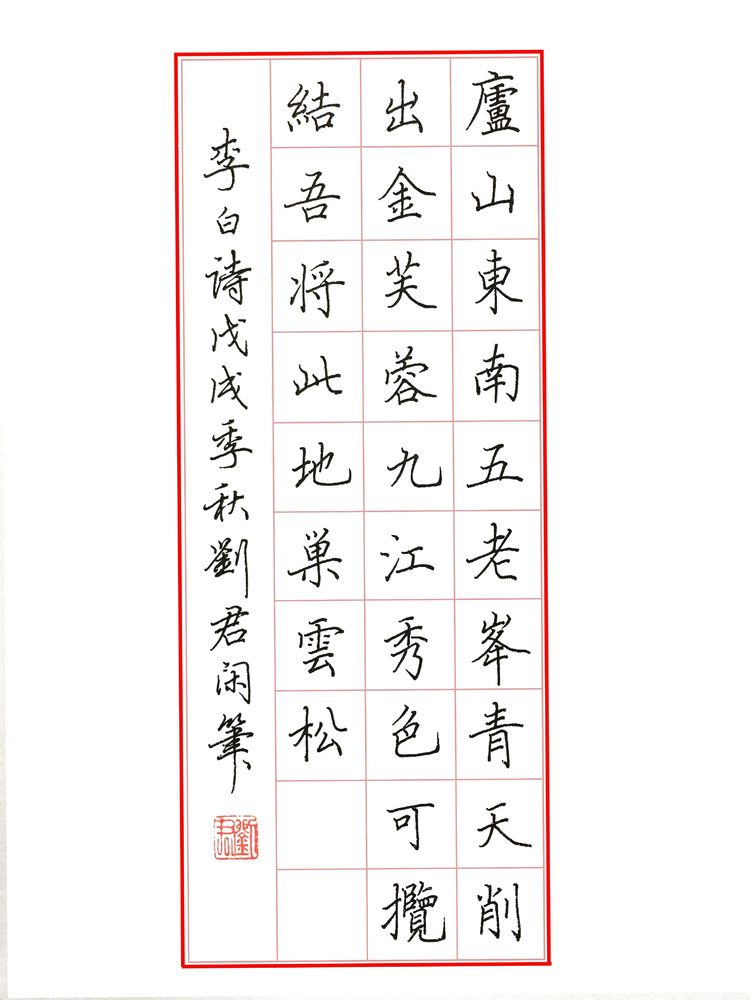 廬山東南五老峯青天削
出金芙蓉九江秀色可攬
結吾将此地巢雲松
李白詩戊戌季秋劉君闲筆
劉君